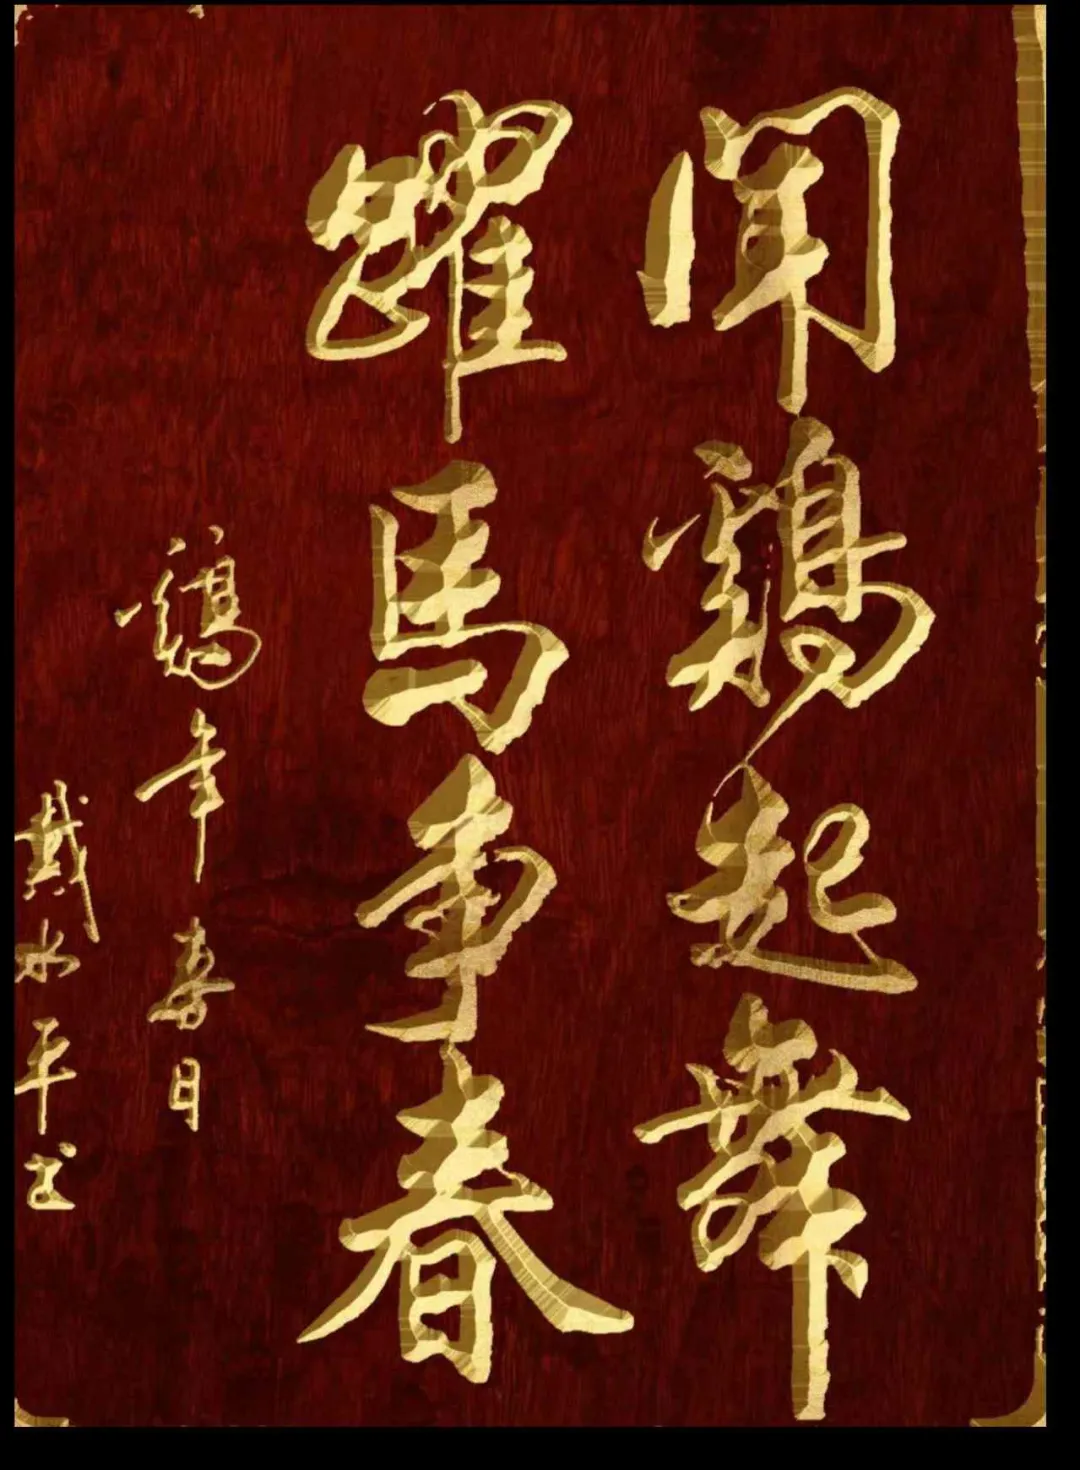 闻鷄起舞
躍馬争春
鷄年春日
戴水平书